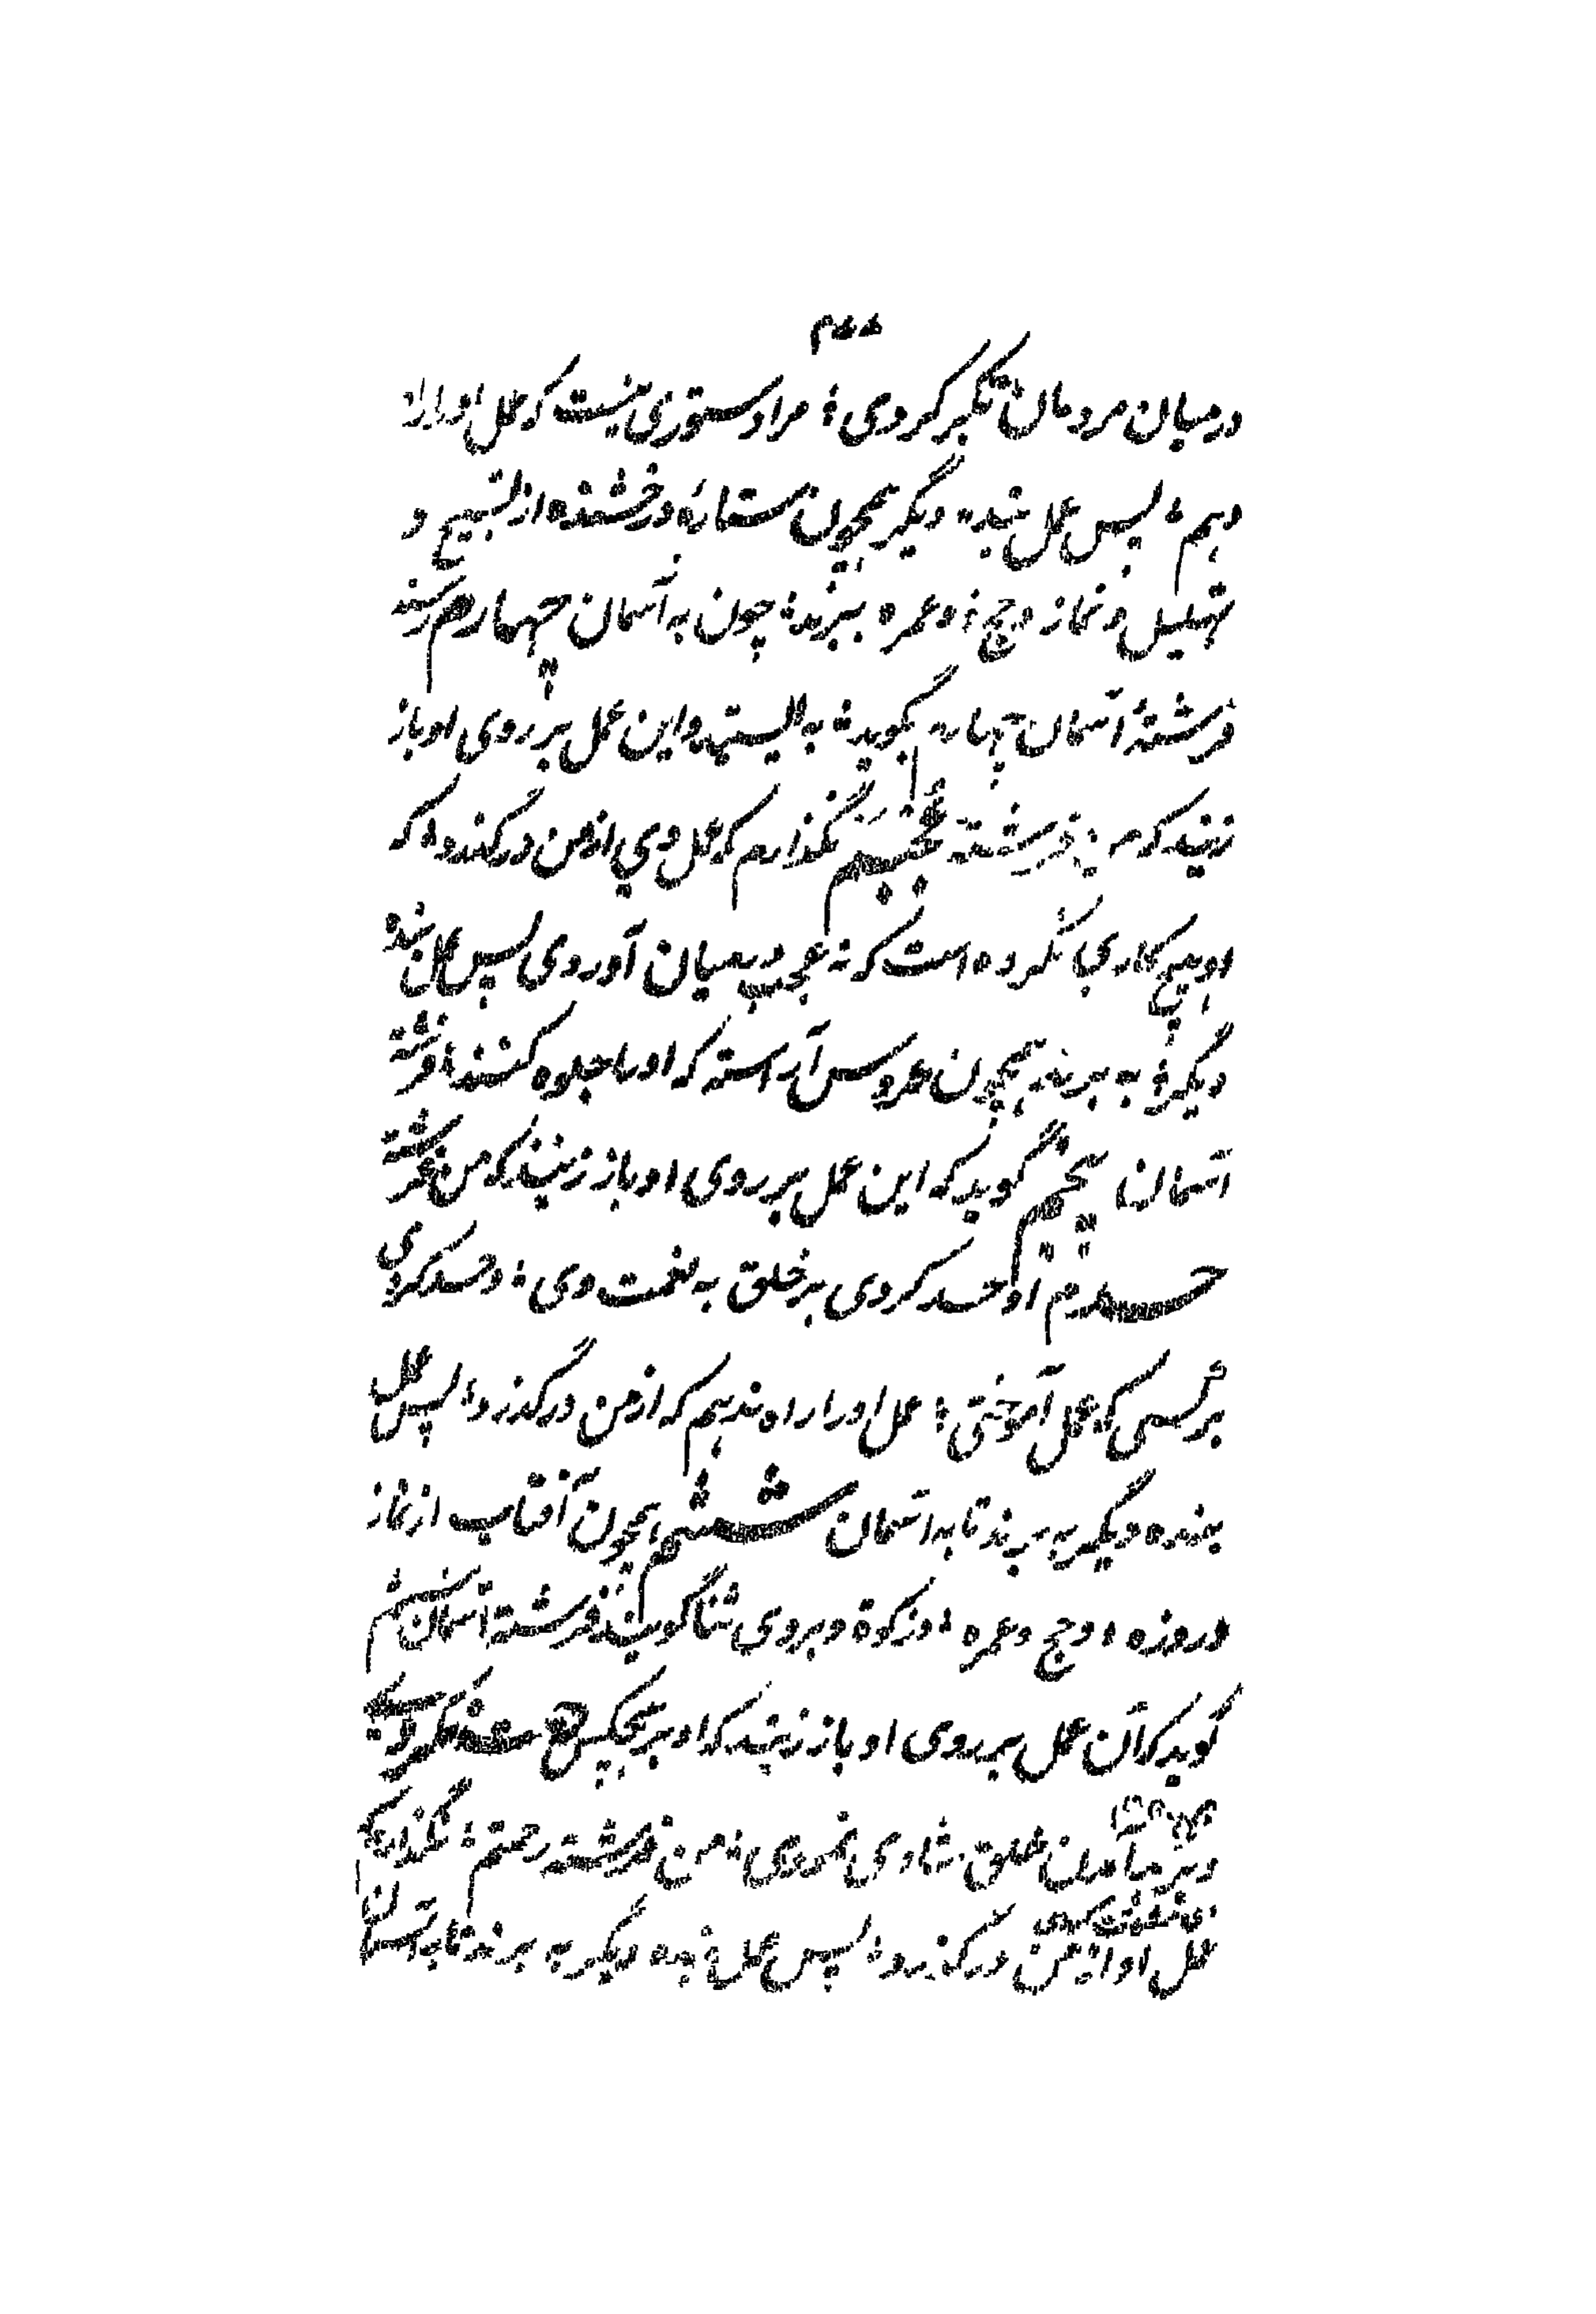 در میان مردمان تکبر کردی؛ مرا دستوری نیست که عمل او را راه
دهم؛ پس عمل بنده دیگر همچون ستارهٔ درخشنده از تسبیح و
تهلیل و نماز و حج؛ و عمره ببرند؛ چون به آسمان چهارم رسند
فرشتهٔ آسمان چهارم بگوید؛ به ایستید و این عمل بر روی او باز
زنید که من فرشته عجبم نگذارم که عمل وی از من درگذرد؛ که
او هیچ کاری نکرده است که نه عجب در میان آوردی پس عمل بنده
دیگر؛ به برند همچون عروس آراسته که او را جلوه کنند؛ فرشته
آسمان پنجم گوید که این عمل بر روی او باز زنید که من فرشته
حسدم او حسد کردی بر خلق به نعمت وی؛ و حسد کردی
بر کسی که عمل آموختی؛ عمل او را راه ندهم که از من درگذرد؛ پس عمل
بنده دیگر به برند تا به آسمان ششم همچون آفتاب از نماز
و روزه؛ و حج و عمره؛ و زکوة و بر وی ثنا گویند فرشته آسمان ششم
گوید که آن عمل بر روی او باز زنید که او بر هیچکس
و بر خلق شادی نمودی؛ من فرشته رحمتم؛ نگذارم که
عمل او از من درگذرد؛ پس عمل بنده دیگر به برند تا به آسمان